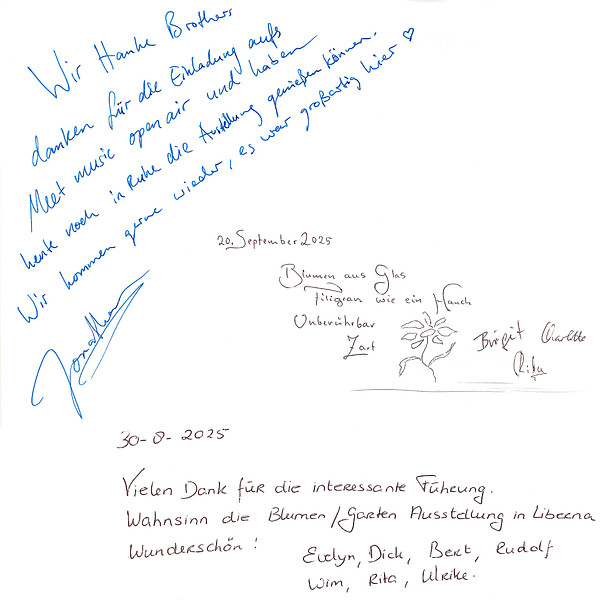 Wir Hanke Brothers
danken für die Einladung aufs
Meet music open air und haben
heute noch in Ruhe die Austellung genießen können.
Wir kommen gerne wieder, es war großartig hier ♡
Jonathan
20. September 2025
Blumen aus Glas
Filigran wie ein Hauch
Unberührbar
Zart
Birgit Charlotte
Rita
30-8-2025
Vielen Dank für die interessante Führung.
Wahnsinn die Blumen/Garten Ausstellung in Liberna
Wunderschön!
Evelyn, Dick, Bert, Rudolf
Wim, Rita, Ulrike.